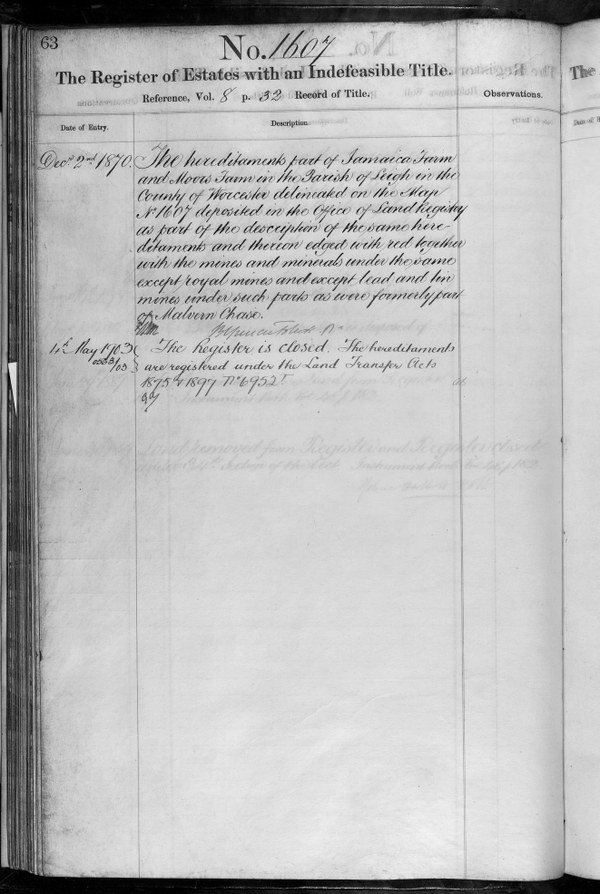 63
No. 1607
The Register of Estates with an Indefeasible Title.
Reference, Vol. 8 p. 32 Record of Title.
Observations.
Date of Entry.
Description.
Decr. 2nd 1870.
The hereditaments part of Jamaica Farm
and Moors Farm in the Parish of Leigh in the
County of Worcester delineated on the Map
No 1607 deposited in the Office of Land Registry
as part of the description of the same here-
ditaments and thereon edged with red together
with the mines and minerals under the same
except royal mines and except lead and tin
mines under such parts as were formerly part
of Malvern Chase.
4th May 1903
The Register is closed. The hereditaments
are registered under the Land Transfer Acts
1875 & 1897 No 6952
The
Date of